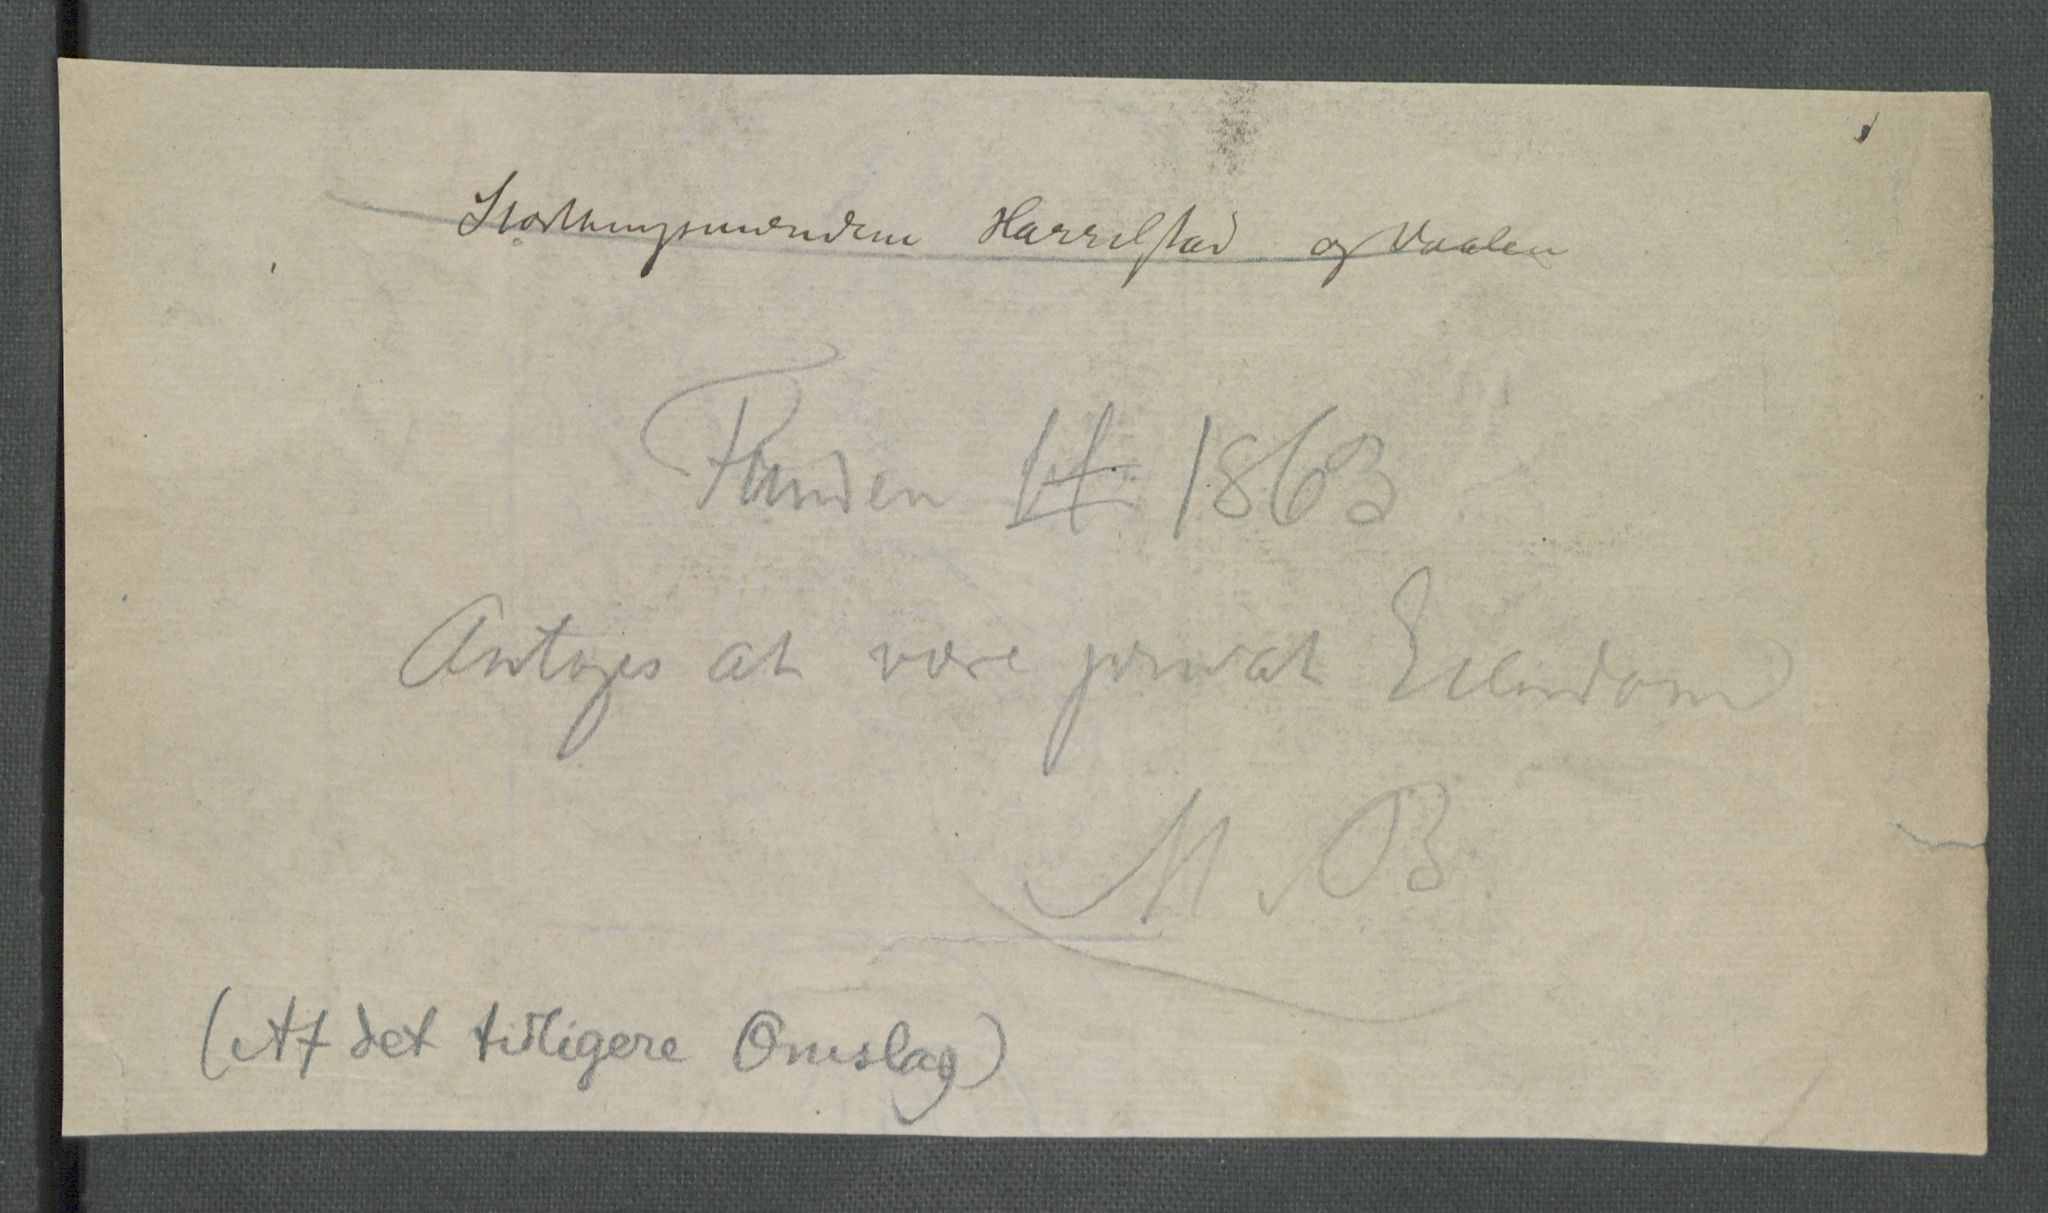 Storthingsmændene Harrelstad og Vaalen
Funden 1863
Antages at være privat Eiendom
M. B.
(Af det tidligere Omslag)